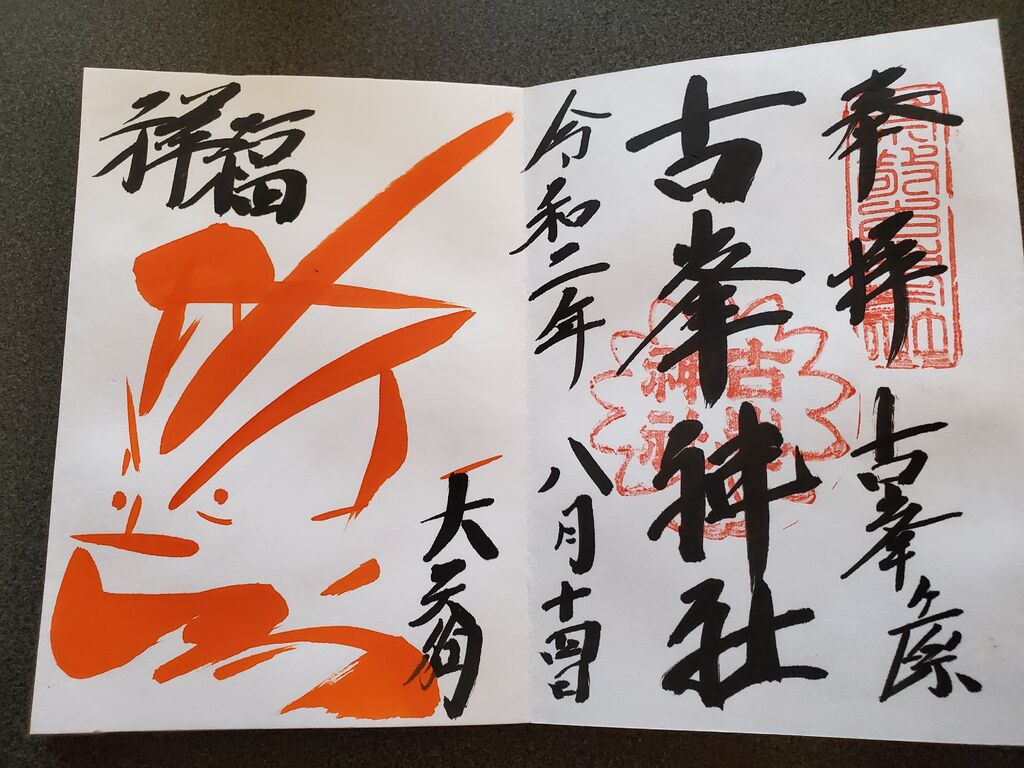 奉拝
古峯ヶ原
古峯神社
令和二年
八月十四日
祥福
大天狗
古峯
神社